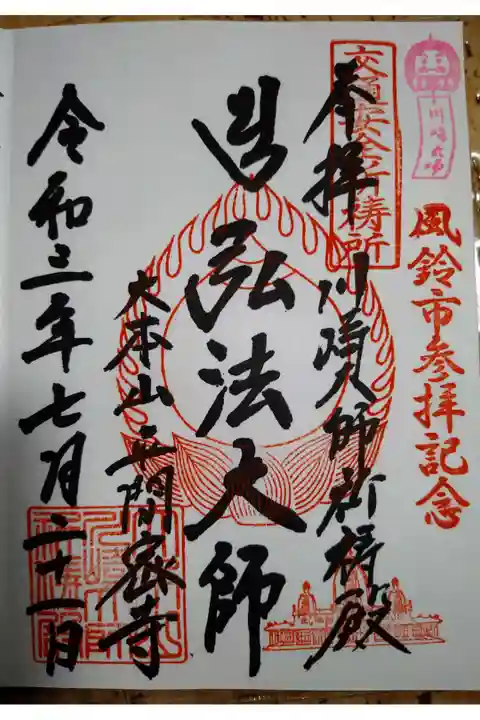 川崎大師
風鈴市参拝記念
交通安全祈祷所
奉拝 川崎大師祈祷殿
弘法大師
大本山平間寺
令和三年七月二十一日